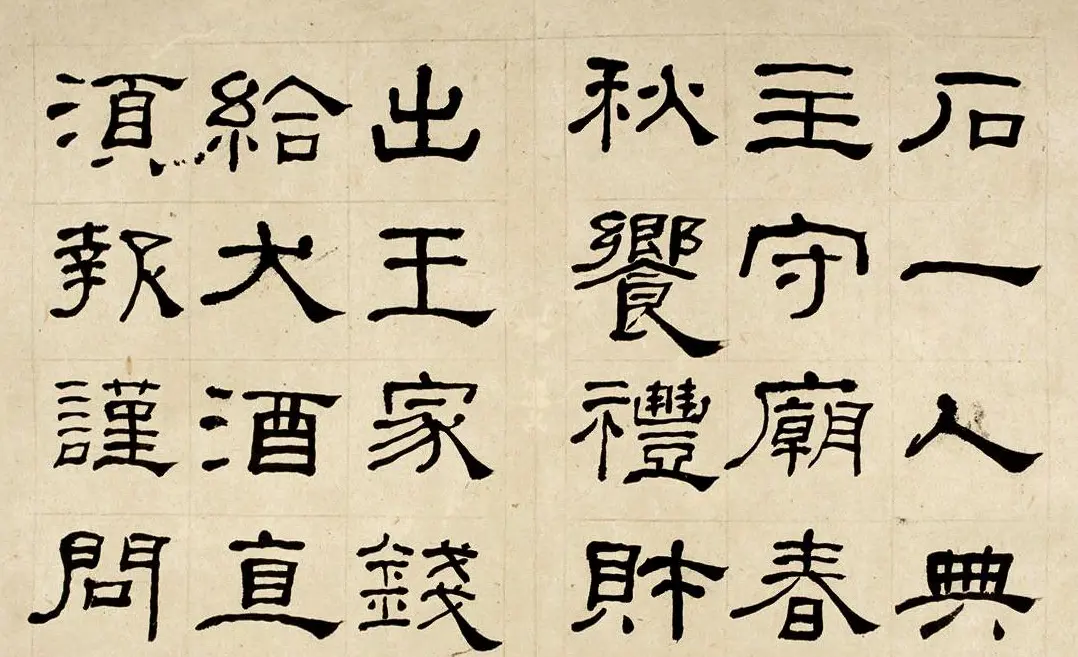 石一人典
主守廟春
秋饗禮財
出王家錢
給犬酒直
須報謹問